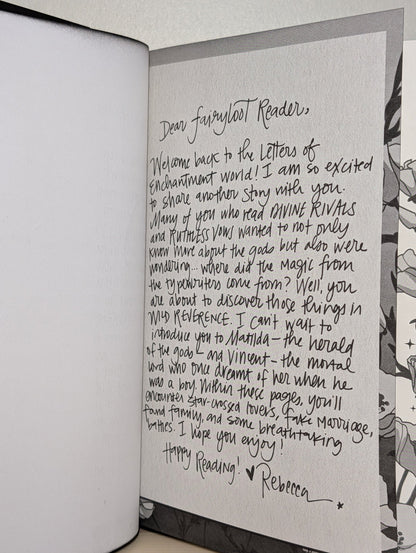 Dear Fairyloot Reader,
Welcome back to the Letters of
Enchantment world! I am so excited
to share another story with you.
Many of you who read DIVINE RIVALS
and RUTHLESS VOWS wanted to not only
know more about the gods but also were
wondering... where did the magic from
the typewriters come from? Well, you
are about to discover those things in
WILD REVERENCE. I can't wait to
introduce you to Matilda – the herald
of the gods – and Vincent – the mortal
lord who once dreamt of her when he
was a boy. Within these pages, you'll
encounter star-crossed lovers, fake marriage,
found family, and some breathtaking
battles. I hope you enjoy!
Happy Reading! ♥ Rebecca